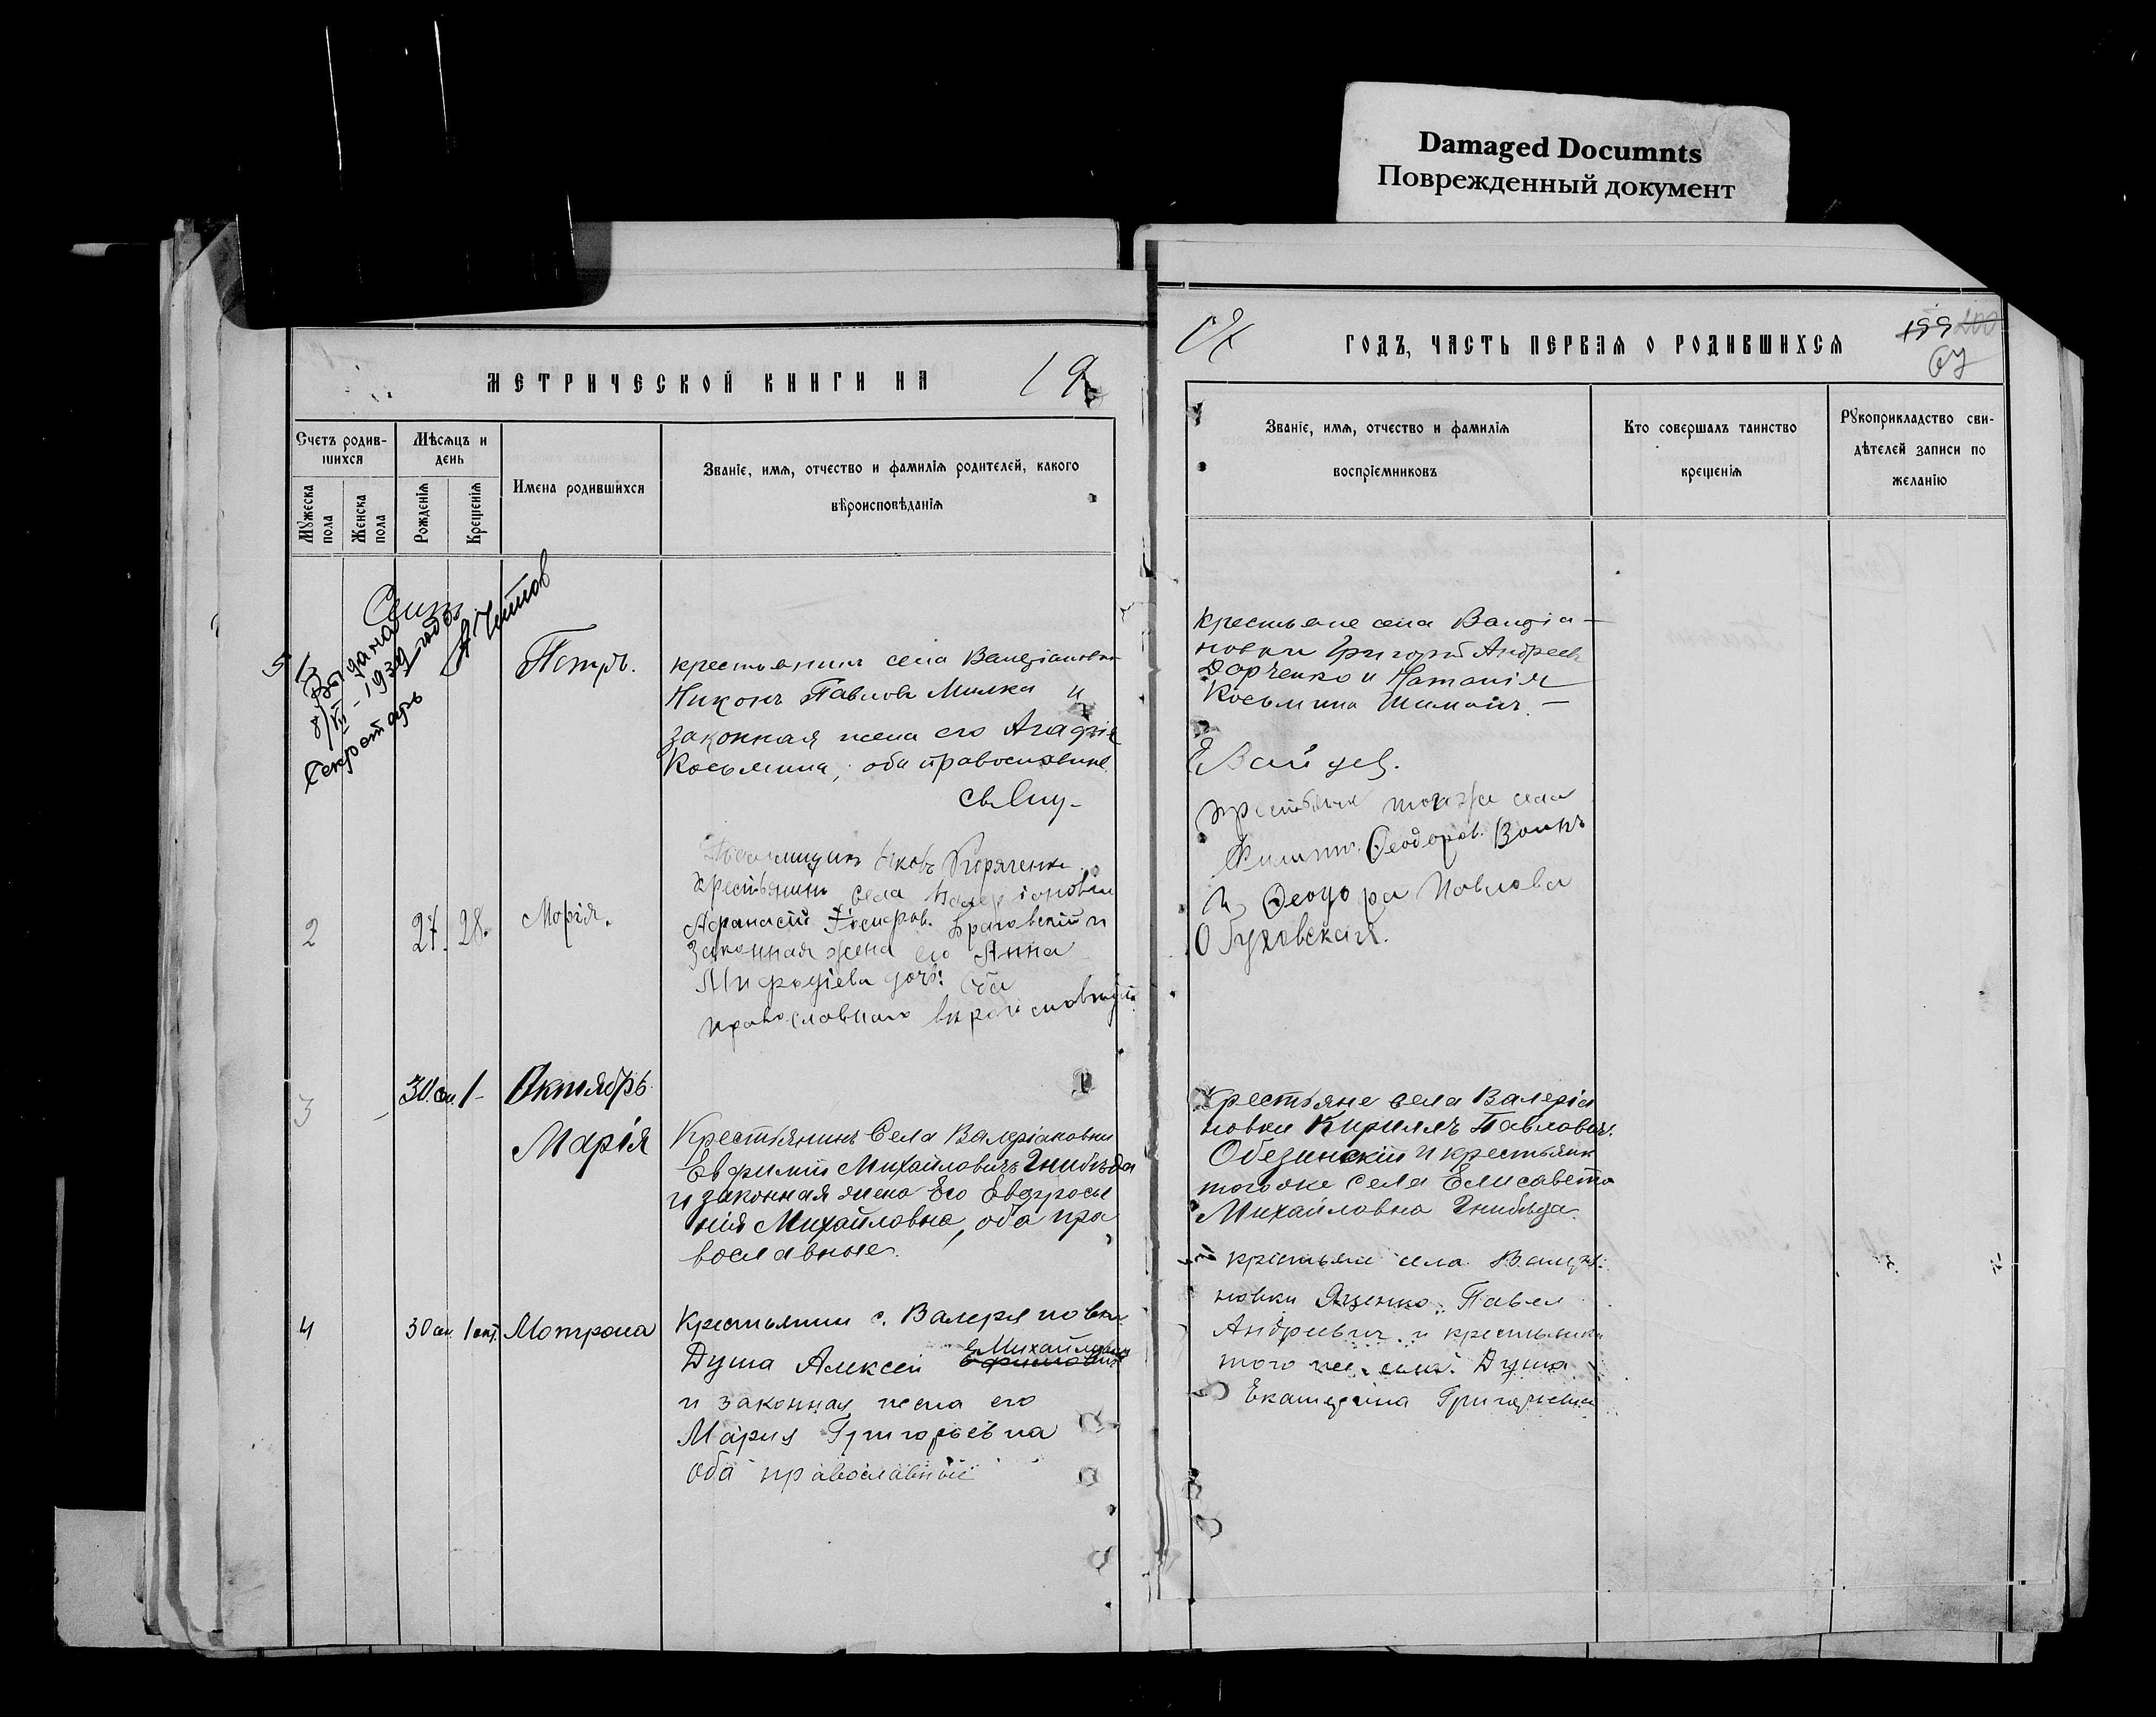 Damaged Documnts
Поврежденный документ
МЕТРИЧЕСКОЙ КНИГИ НА 19
ГОДЪ, ЧАСТЬ ПЕРВАЯ О РОДИВШИХСЯ
199 200
67
Счетъ родив-
шихся
Мужеска
пола
Женска
пола
Мѣсяцъ и
день
Рожденія
Крещенія
Имена родившихся
Званіе, имя, отчество и фамилія родителей, какого
вѣроисповѣданія
Званіе, имя, отчество и фамилія
воспріемниковъ
Кто совершалъ таинство
крещенія
Рукоприкладство сви-
дѣтелей записи по
желанію
Сент
Выдана
8/VII-1939 года
Секретарь
Петръ.
крестьянинъ села Валеріановки
Никонъ Павловъ Милка и
законная жена его Агафія
Косьмина, оба православные.
крестьяне села Валеріа-
новки Григорій Андреевъ
Дорченко и Наталія
Косьмина
2
27. 28.
Марія.
Яковъ
крестьянинъ села Валеріановки
Афанасій
законная жена его Анна
Мифодіева дочь: оба
православнаго
крестьяне тогоже села
Филиппъ Феодоров. Волкъ
и Феодора Павлова
Обуховская.
3
30 сен. 1 Октябрь
Марія
Крестьянинъ Села Валеріановки
Евфимій Михайловичъ Гнибѣда
и законная жена Его Евфросы
нія Михайловна, оба пра
вославные.
Крестьяне села Валеріа
новки Кириллъ Павловичъ
Обезинскій и крестьянк
тогоже села Елисавета
Михайловна Гнибѣда.
4
30 сен. 1 окт. Мотрона
Крестьянин с. Валеряновки
Душа Алексей Михайлович
и законная жена его
Мария Григорьевна
оба православные
крестьяне села Валеріа
новки Яценко Павел
Андреевич и крестьянка
того же села Душа
Екатерина Григорьевна